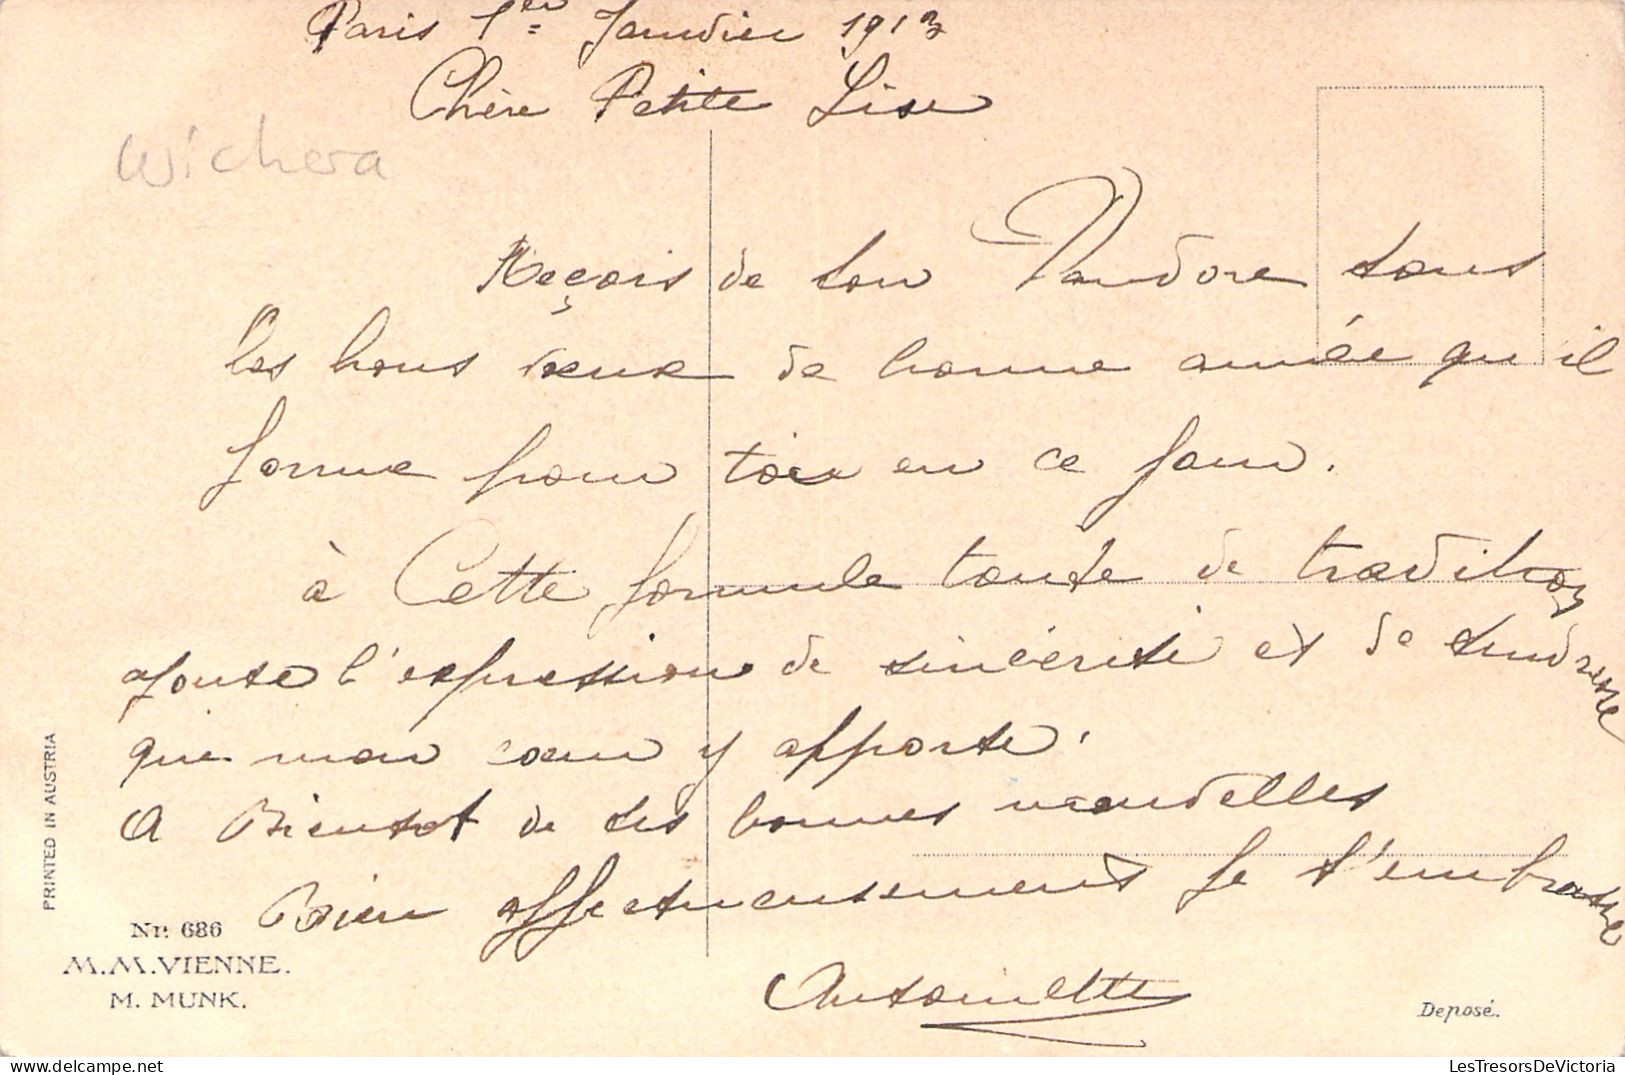 Paris 1er Janvier 1913
Chère Petite Lise
Wichera
Reçois de ton Pandore tous
les bons vœux de bonne année qu'il
forme pour toi en ce jour.
à Cette formule toute de tradition
ajoute l'expression de sincérité et de tendresse
que mon cœur y apporte.
A Bientot de tes bonnes nouvelles
Bien affectueusement je t'embrasse
Antoinette
PRINTED IN AUSTRIA
Nr. 686
M.M.VIENNE.
M. MUNK.
Deposé.
LesTresorsDeVictoria